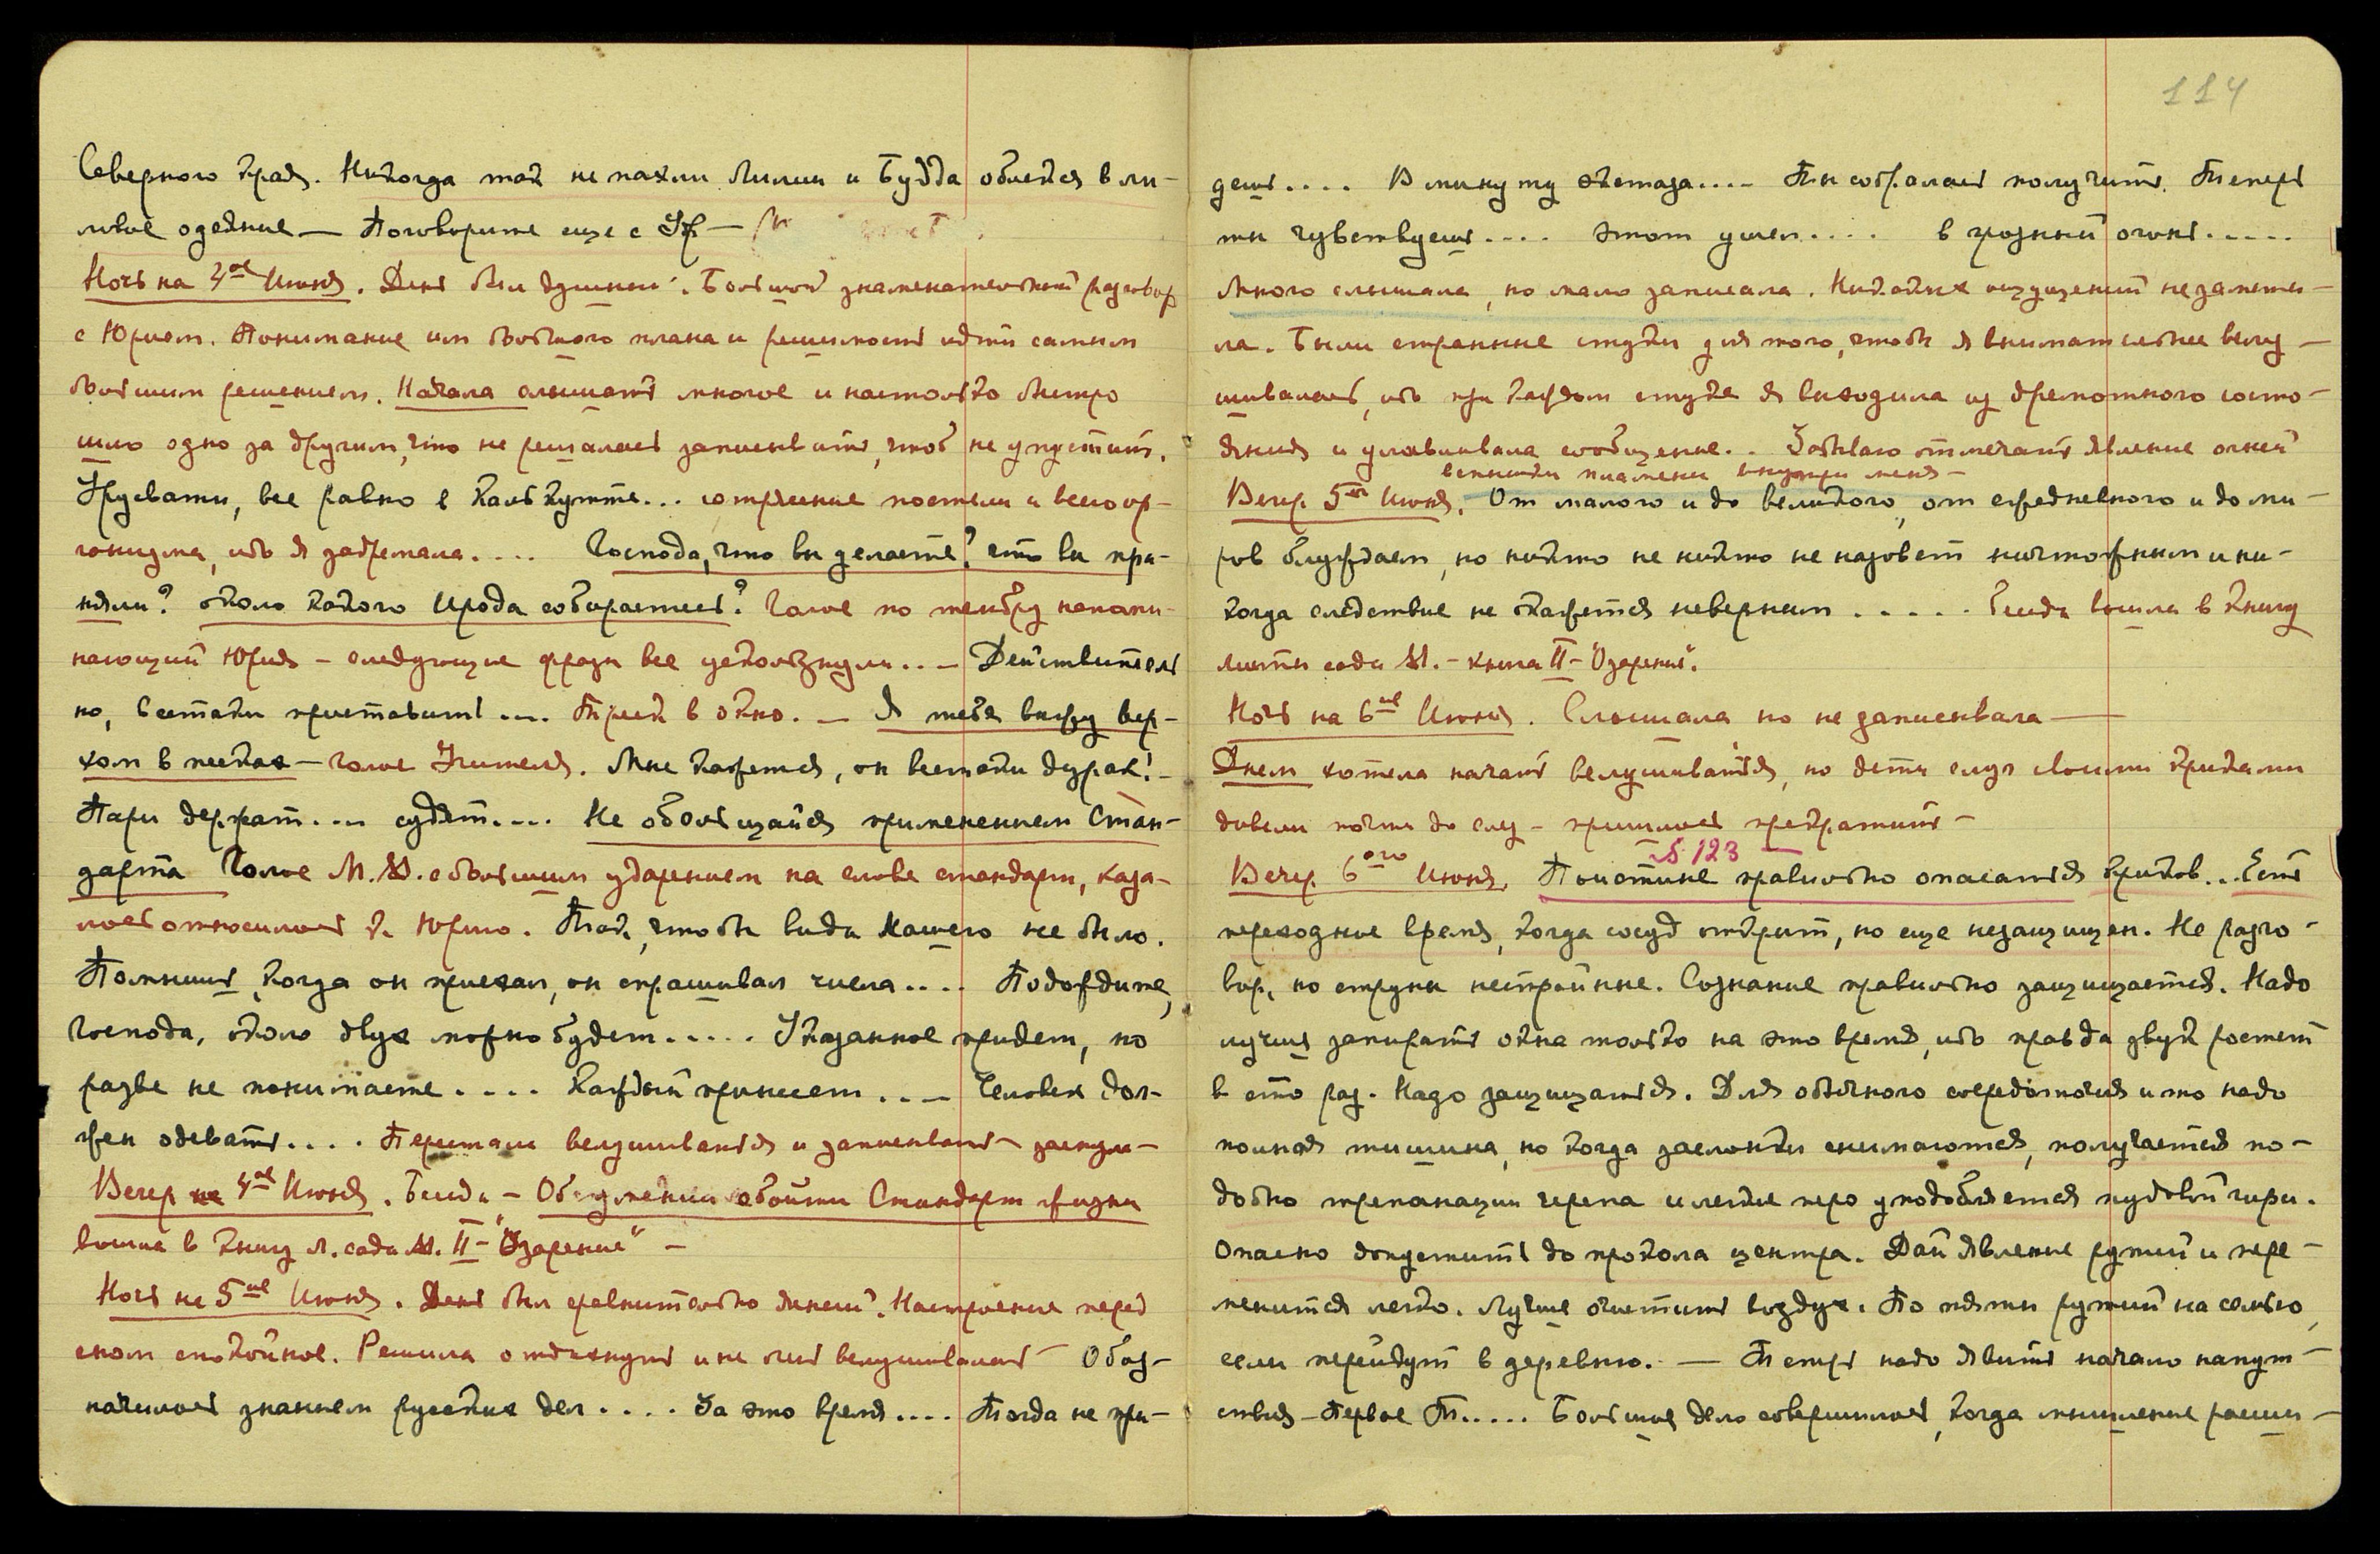 Северного Края. Никогда так не пахли Лилии и Будда облекся в ли-
ловое одеяние — Поговорите еще с Уф —
Ночь на 4ое Июня. День был душный. Большой знаменательный разговор
с Юрием. Понимание им большого плана и решимость идти самым
большим решением. Начала слышать многое и настолько быстро
шло одно за другим, что не решалась записывать, чтоб не упустить.
Урусвати, все равно в Калькутте... сотрясение постели и всего ор-
ганизма, ибо я задремала.... Господа, что вы делаете? что вы при-
няли? около какого Ирода собираетесь? Голос по тембру напоми-
нающий Юрия — следующие фразы все ускользнули... — Действитель
но, всетаки приставить.... Крик в окно. — Я тебя вижу вер-
хом в песках — голос Учителя. Мне кажется, он всетаки дурак! —
Пари держат.... судят.... Не обольщайся применением Стан-
дарта Голос М.М. с большим ударением на слове стандарт, каза-
лось относилось к Юрию. Так, чтобы вида Нашего не было.
Помнишь, когда он приехал, он спрашивал числа.... Подождите,
Господа, около двух можно будет..... Указанное придет, но
разве не понимаете.... Каждый принесет.... Человек дол-
жен одевать.... Перестала вслушиваться и записывать — заснула —
Вечер на 4ое Июня. Беседа — Обсуждении свойств Стандарт жизни
вошла в книгу Л. сада М. II — "Озарение" —
Ночь на 5ое Июня. День был сравнительно ясный. Настроение перед
сном спокойное. Решила отдохнуть и не очень вслушивалась — Обоз-
началось знанием русских дел.... За это время.... Тогда не при-
114
дешь.... В минуту экстаза.... Ты собралась получить. Теперь
ты чувствуешь.... этот ушел.... в грозный огонь.....
Много слышала, но мало записала. Никаких ощущений не замети-
ла. Были странные стуки для того, чтобы я внимательнее вслу-
шивалась, ибо при каждом стуке я выходила из дремотного состо-
яния и улавливала сообщение.. Забываю отмечать явление огней
вспышки пламени внутри меня —
Вечер 5ое Июня. От малого и до великого, от ежедневного и до ми-
ров блуждаем, но никто не никто не назовет ничтожным и ни-
когда следствие не окажется неверным..... Беседа вошла в книгу
листы сада М. — книга II — "Озарение".
Ночь на 6ое Июня. Слышала но не записывала —
Днем хотела начать вслушиваться, но дети слуг своими криками
довели почти до слез — пришлось прекратить —
§ 123 —
Вечер 6ого Июня. Поистине правильно опасаться криков.. Есть
переходное время, когда сосуд открыт, но еще незащищен. Не разго-
вор, но струны нестройные. Сознание правильно защищается. Надо
лучше запирать окна только на это время, ибо правда звук растет
в сто раз. Надо защищаться. Для обычного сосредоточия и то надо
полная тишина, но когда заслонки снимаются, получается по-
добно трепанации черепа и легкое перо уподобляется пудовой гири.
Опасно допустить до прокола центра. Дай явление рупий и пере-
менится легко. Лучше очистить воздух. По пяти рупий на семью,
если перейдут в деревню. — Теперь надо явить начало напут-
ствия — Первое Т..... Большое дело совершилось, когда мышление расши-